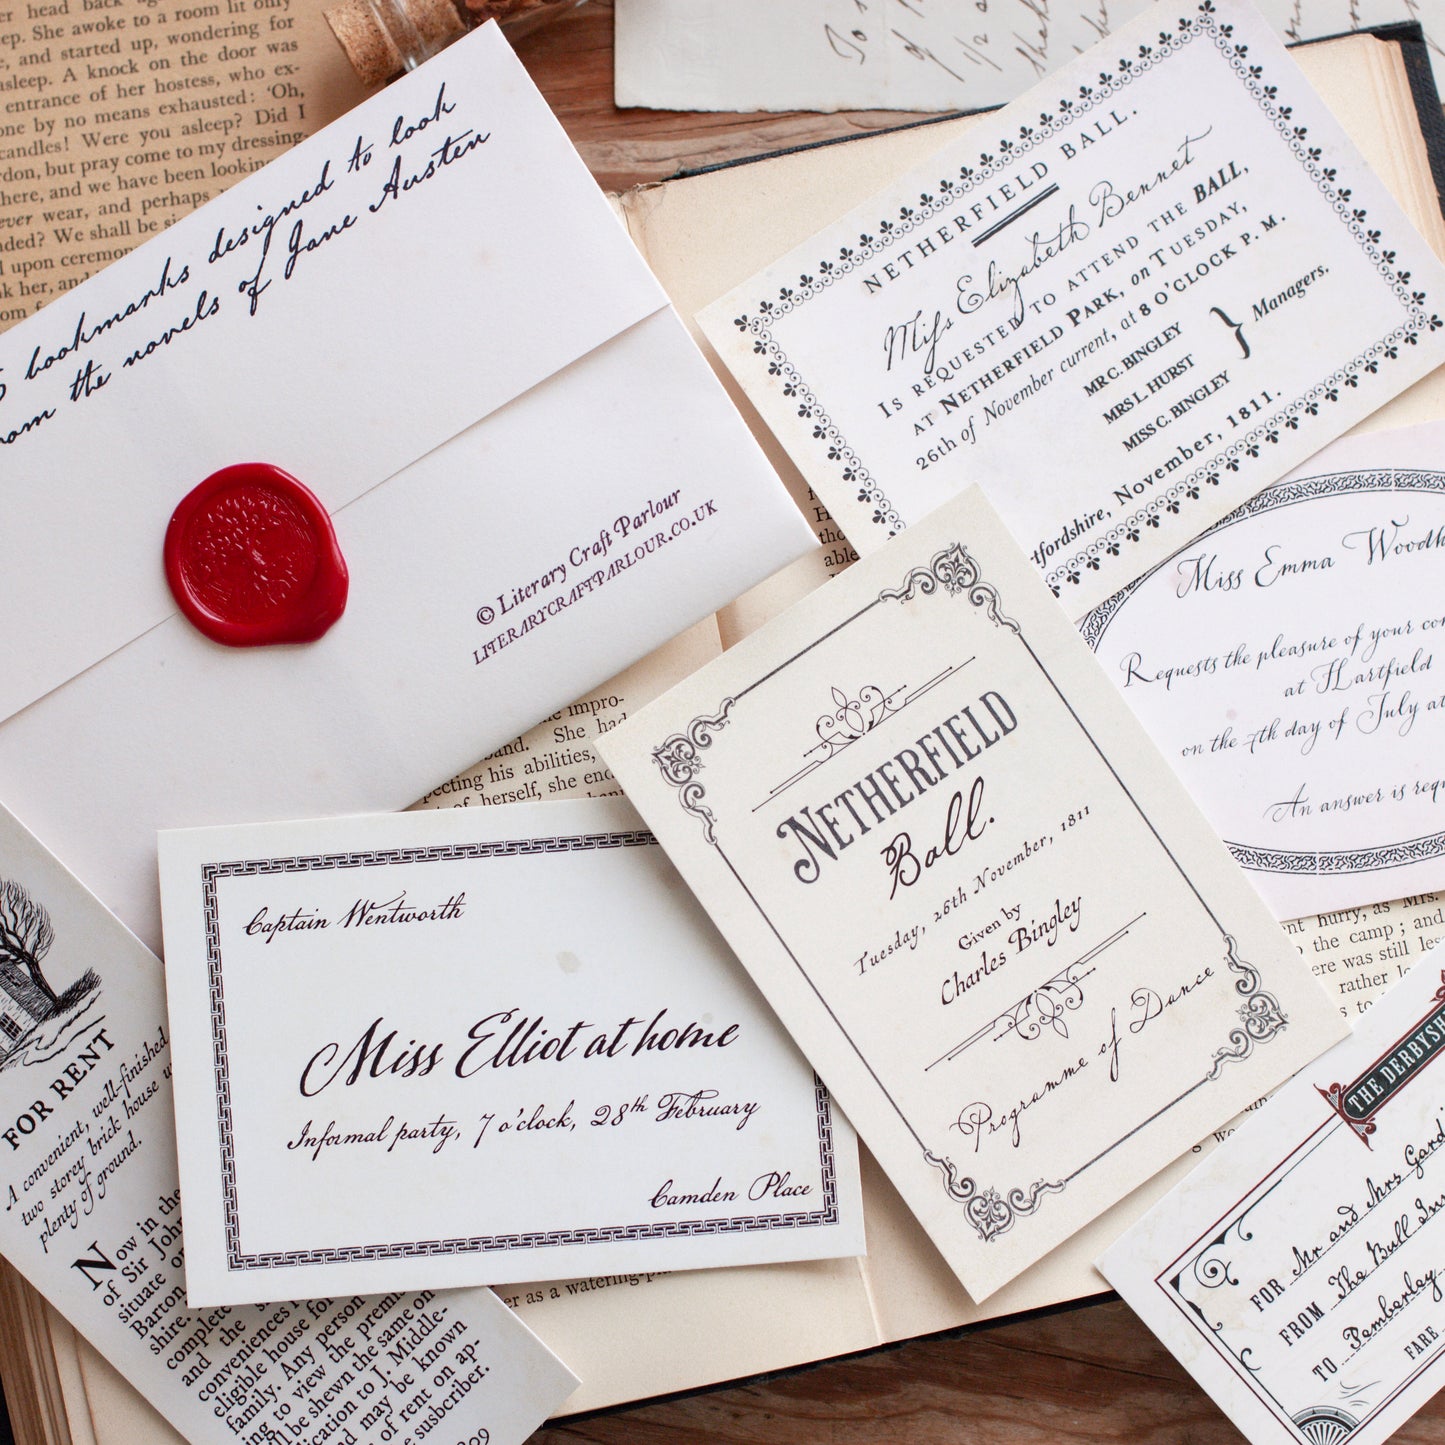 er head back
She awoke to a room lit only
and started up, wondering for
asleep. A knock on the door was
entrance of her hostess, who ex-
one by no means exhausted: 'Oh,
candles! Were you asleep? Did I
but pray come to my dressing-
here, and we have been looking
ever wear, and perhaps
We shall be
upon ceremon
k her, and
bookmarks designed to look
the novels of Jane Austen
© Literary Craft Parlour
LITERARYCRAFTPARLOUR.CO.UK
NETHERFIELD BALL.
Miss Elizabeth Bennet
IS REQUESTED TO ATTEND THE BALL,
AT NETHERFIELD PARK, on TUESDAY,
26th of November current, at 8 O'CLOCK P. M.
MR C. BINGLEY
MRS L. HURST
MISS C. BINGLEY
} Managers.
tfordshire, November, 1811.
Miss Emma Woodh
Requests the pleasure of your com
at Hartfield
on the 7th day of July at
An answer is requ
impro-
She had
pecting his abilities,
of herself, she
NETHERFIELD
Ball.
Tuesday, 26th November, 1811
Given by
Charles Bingley
Programme of Dance
Captain Wentworth
Miss Elliot at home
Informal party, 7 o'clock, 28th February
Camden Place
hurry, as Mrs.
the camp; and
ere was still les
rather
er as a watering-
FOR RENT
A convenient, well-finished
two storey brick house
plenty of ground.
Now in the
of Sir John
situate
Barton
shire.
complete
and the
conveniences
eligible house for
family. Any person
to view the premi
be shewn the same on
to J. Middle-
may be known
of rent on ap-
subscriber.
THE DERBYSH
FOR Mr and Mrs Gardi
FROM The Bull Inn
TO Pemberley
FARE